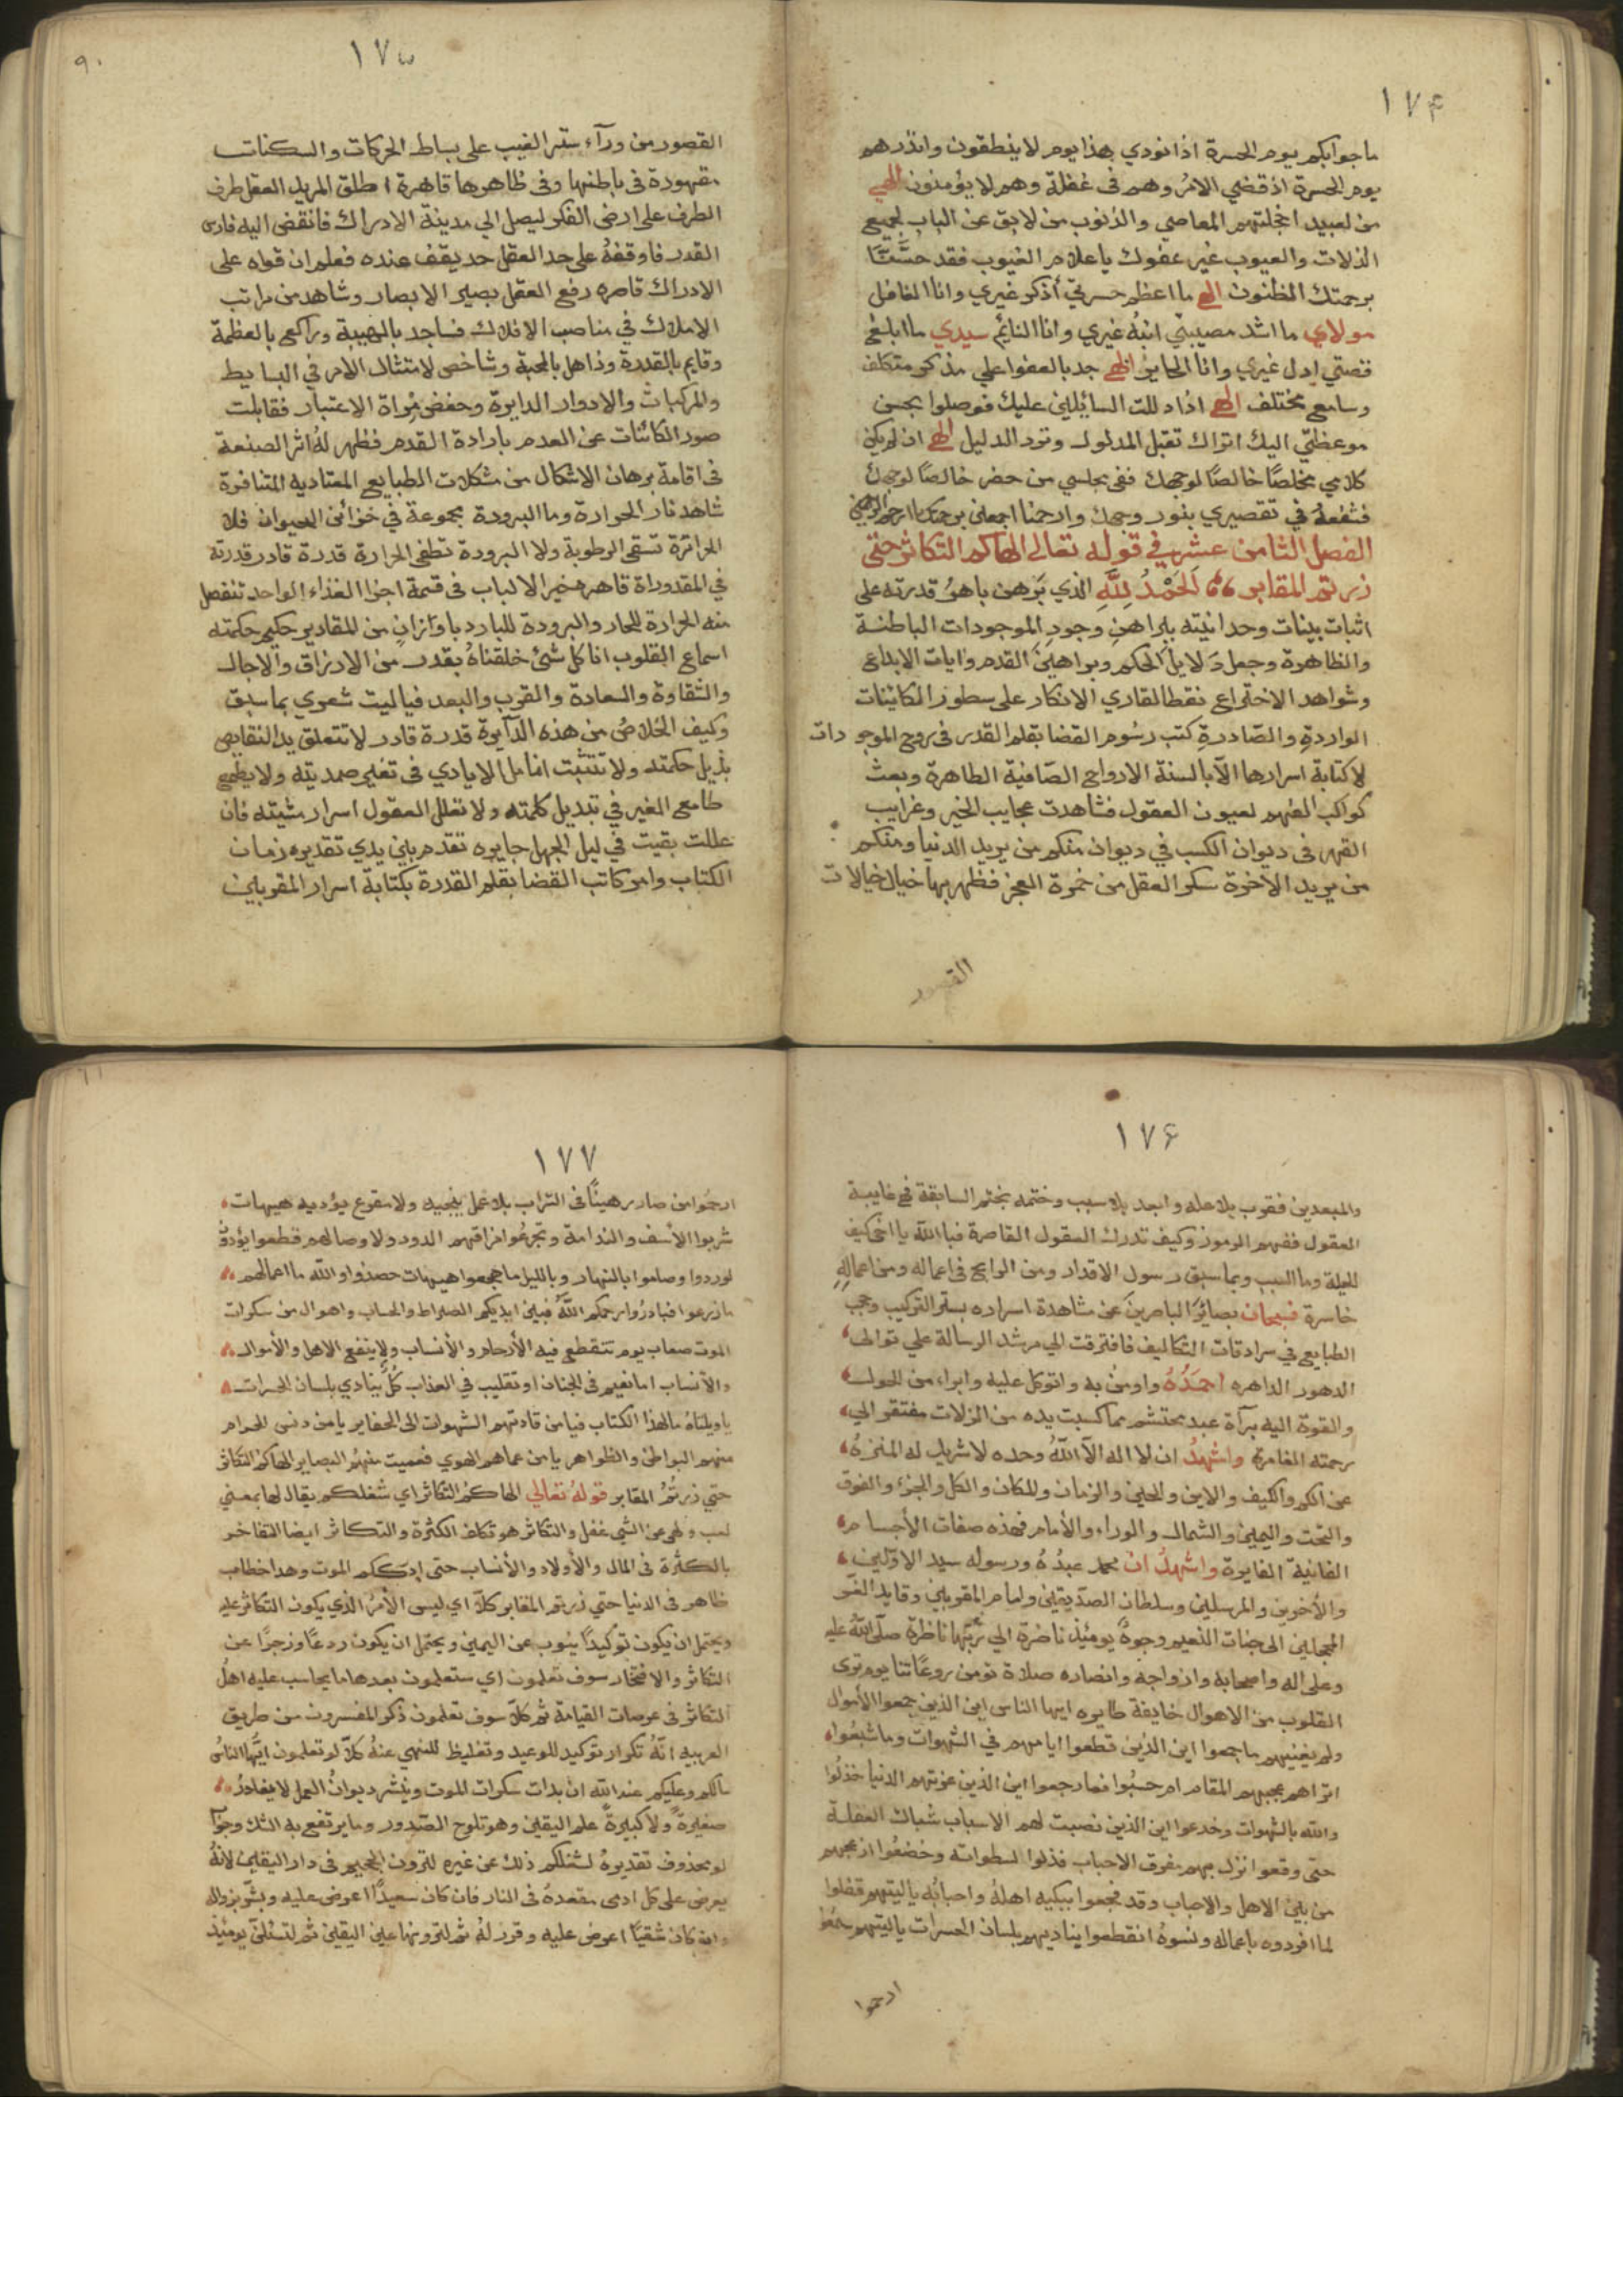 ١٧۴
ما جوابكم يوم الحسرة اذا نودي هذا يوم لا ينطقون وانذرهم
يوم الحسرة اذ قضي الامرُ وهم فى غفلة وهم لا يؤمنون الهي
من لعبيد اخجلتهم المعاصي والذنوب من لابق عن الباب لجميع
الذلات والعيوب غير عفوك ياعلام الغيوب فقد حسَّنَّا
برحمتك الظنون الهي ما اعظم حسرتي أذكر غيري وانا الغافل
مولاي ما اشد مصيبتي انبهُ غيري وانا النايم سيدي ما ابلغ
قصتي ادل غيري وانا الحاير الهي جد بالعفو علي مذكر متكلف
وسامع مختلف الهي اذا دللت السائلين عليك فوصلوا بحسن
موعظتي اليك اتراك تقبل المدلول وترد الدليل الهي ان لم يكن
كلامي مخلصًا خالصًا لوجهك ففي مجلسي من حضر خالصًا لوجهك
فشفعهُ في تقصيري بنور وجهك وارحمنا اجمعين برحمتك يا ارحم الراحمين
الفصل الثامن عشر في قوله تعالى الهاكم التكاثر حتى
زرتم المقابر اَلحَمْدُ لِلَّهِ الذي بَرهن باهرُ قدرته على
اثبات بينات وحدانيته براهن وجودِ الموجودات الباطنة
والظاهرة وجعل دَلايل الحكم وبراهين القدم وايات الابداع
وشواهد الاختراع نقطا لقاري الانكار على سطور الكائنات
الواردةِ والصّادرةِ كتب رسُوم القضا بقلم القدر فى روح الموجودات
لا كتابة اسرارها الآ بالسنة الارواح الصّافية الطاهرة وبعث
كواكب الفهم لعيون العقول فشاهدت عجايب الخير وغرايب
القهر فى ديوان الكسب في ديوان منكم من يريد الدنيا ومنكم
من يريد الآخرة سكر العقل من خمرة العجز فظهر بها خيال خيالات
القصور
٩٠
١٧۵
القصور من ورآء ستر الغيب على بساط الحركات والسكنات
مقهورة فى باطنها وفى ظاهرها قاهرة اطلق المريد العقل طرف
الطرف على ارض الفكر ليصل الي مدينة الادراك فانقض اليه فارس
القدر فاوقفهُ على حد العقل حد يقف عنده فعلم ان قواه على
الادراك قاصره رفع العقل بصير الابصار وشاهد من مراتب
الاملاك في مناصب الافلاك فساجد بالهيبة وراكع بالعظمة
وقايم بالقدرة وذاهل بالمحبة وشاخص لامتثال الامر في البسايط
والمركبات والادوار الدايرة وحفض مِراة الاعتبار فقابلت
صور الكائنات عن العدم بارادة القدم فظهر لهُ اثر الصنعة
فى اقامة برهان الاشكال من مشكلات الطبايع المعتاديه المتنافرة
شاهد نار الحرارة وما البرودة مجموعة في خزائن الحيوان فلا
الحرارة تسقى الرطوبة ولا البرودة تطفى الحرارة قدرة قادر قدرته
في المقدوراة قاهره خير الالباب فى قسمة اجزا الغذاء الواحد تنفصل
منه الحرارة للحار والبرودة للبارد باوزانٍ من المقادير حكيم حكمته
اسماع القلوب انا كل شئ خلقناهُ بقدر من الارزاق والاجال
والشقاوة والسعادة والقرب والبعد فياليت شعري بما سبق
وكيف الخلاصُ من هذه الدآيرة قدرة قادر لا تتعلق يد النقايص
بذيل حكمته ولا تتثبت انامل الايادي فى تغير صمديته ولا يطمع
طامع المغير في تبديل كلمته ولا تعلل العقول اسرار مشيته فان
عللت بقيت في ليل الجهل حايره تقدم بين يدي تقديره زمان
الكتاب وامر كاتب القضا بقلم القدرة بكتابة اسرار المقربين
١٧۶
والمبعدين فقرب بلا عله وابعد بلا سبب وختمه بختم السابقة فى غايبة
العقول ففهم الرموز وكيف تدرك العقول القاصرة فبا الله يا اخي كيف
للعلة وما السبب وبما سبق رسول الاقدار ومن الرابح فى اعماله ومن اعمالِهِ
خاسرة فسبحان بصائرَ الباصرينَ عن مشاهدة اسراره بستر التركيب وحجب
الطبايع في سرادقات التكاليف فافترقت الي مرشد الرسالة علي توالى
الدهور الداهره احمَدُهُ واومنُ به واتوكل عليه وابراء من الحول
والقوة اليه برآة عبد محتشم مما كسبت يده من الزلات مفتقر الي
رحمته الغامرة واشهدُ ان لا اله الآ اللهُ وحده لا شريك له المنزهُ
عن الكم والكيف والاين والحين والزمان والمكان والكل والجزء والفوق
والتحت واليمين والشمال والوراء والأمام فهذه صفات الأجسام
الفانية الغايرة واشهدُ ان محمد عبدُهُ ورسوله سيد الاوّلين
والأخرين والمرسلين وسلطان الصدّيقين وامام المقربين وقايد الغر
المحجلين الى جنات النعيم وجوهٌ يومئذ ناضرة الي ربّها ناظرة صلّى اللهُ عليه
وعلى اله واصحابه وازواجه وانصاره صلاة تومن روعَاتنا يوم ترى
القلوب من الاهوال خايفة طايره ايها الناس اين الذين جمعوا الأموال
ولم يغنيهم ما جمعوا اين الذين قطعوا ايامهم في الشهوات وما شبعُوا
اتراهم يعجبهم المقام ام حسبُوا فما رجعوا اين الذين عزبتهم الدنيا خذلُوا
والله بالشهوات وخدعوا اين الذين نصبت لهم الاسباب شباك الغفلة
حتى وقعوا نزل بهم مفرق الاحباب فذلوا لسطواته وخضعُوا ازعجهم
من بين الاهل والاحباب وقد فجعوا يبكيه اهلهُ واحبابُه ياليتهم فضلوا
لما افردوه باعماله ونسوهُ انقطعوا يناديهم بلسان الحسرات ياليتهم سمعُوا
ارحموا
١٧٧
ارحمُوا من صار رهينًا في التراب بلا عمل ينجيه ولا مفزع يؤديه هيهات
شربوا الأسف والندامة وتجرعُوا فراقهم الدود ولا وصالهم قطعوا
لو ردوا وصاموا بالنهار وبالليل ما هجعوا هيهات حصدُوا والله ما اعمالهم
ما زرعوا فبادرُوا رحمكم اللهُ فبين ايديكم الصراط والحساب واهوال من سكرات
الموت صعاب يوم تتقطع فيه الأرحام والأنساب ولا ينفع الاهل والأموال
والأنساب اما نعيم فى الجنان او تقليب في العذاب كُلٌ ينادي بلسان الحسرات
ياويلتاهُ مالهذا الكتاب فيامن قادتهم الشهوات الى الحفاير يامن دنس الحرام
منهم البواطن والظواهر يامن عماهم الهوي فعميت منهُم البصاير الهاكم التكاثر
حتي زرتُمُ المقابر قولهُ تعالي الهاكمُ التكاثر اي شغلكم يقال لها بمعنى
لعب ولهى عن الشي غفل والتكاثر هو تكلف الكثرة والتكاثر ايضا التفاخر
بالكثرة فى المال والأولاد والأنساب حتى ادرككم الموت وهذا خطاب
ظاهر فى الدنيا حتي زرتم المقابر كلآ اي ليس الأمرُ الذي يكون التكاثر عليه
ويحتمل ان يكون توكيدًا ينوب عن اليمين ويحتمل ان يكون ردعًا وزجرًا عن
التكاثر والافتخار سوف تعلمون اي ستعلمون بعدها ما يحاسب عليه اهلُ
التكاثر فى عرصات القيامة ثم كلآ سوف تعلمون ذكر المفسرون من طريق
العربيه انّهُ تكرار توكيد للوعيد وتغليظ للنهي عنهُ كلآ لو تعلمون ايّها الناسُ
مالكم وعليكم عند الله ان بدات سكرات الموت وينشر ديوانُ العمل لا يغادرُ
صغيرةً ولا كبيرةً علم اليقين وهو تلوح الصّدور وما يرتفع به الشك وجوابُ
لو محذوف تقديرهُ لشغلكم ذلك عن غيره لترون الجحيم فى دار اليقين لانهُ
يعرض على كل ادمى مقعدهُ فى النار فان كان سعيدًا اعرض عليه وبشّر بزواله
وان كان شقيًا اعرض عليه وقرر لهُ ثم لترونها عين اليقين ثم لتسئلنّ يومئذ